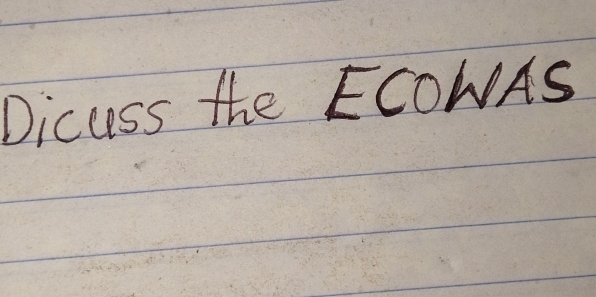 Dicuss the ECOWAS